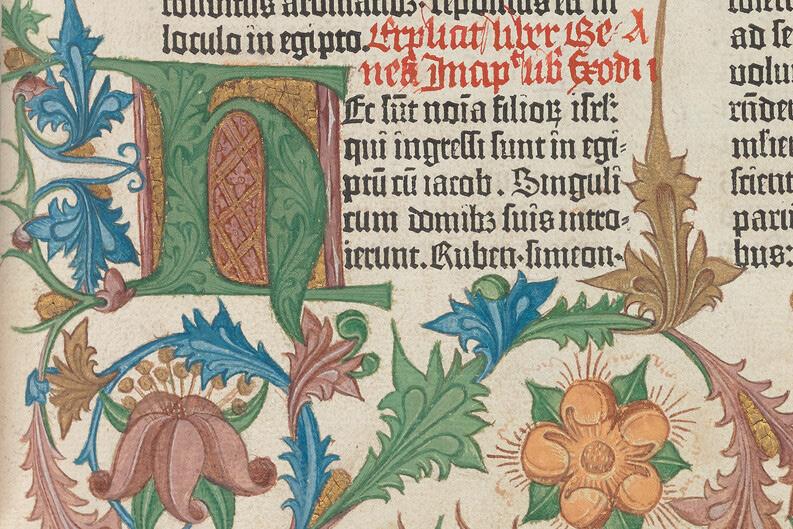 conditus aromatibꝫ· repositus est in
loculo in egipto. Explicit liber Ge-
nesis Incipᵗ lib Exodi
HEc sūt noīa filioꝝ isrl':
qui ingressi sunt in egi-
ptū cū iacob. Singuli
cum domibꝫ suis intro-
ierunt. Ruben·simeon·
ad se
volu
scient
bus: